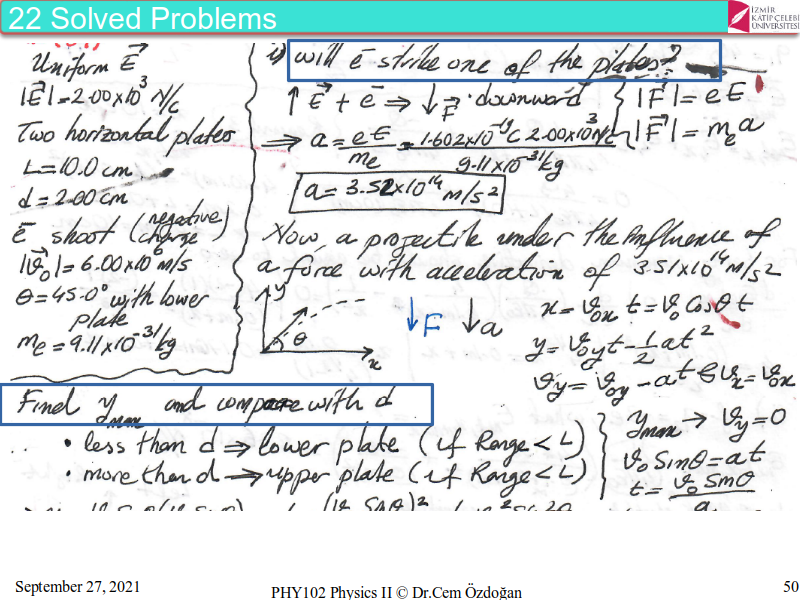 22 Solved Problems
İZMİR
KATİP ÇELEBİ
ÜNİVERSİTESİ
Uniform E⃗
|E⃗| = 2.00x10³ N/C
Two horizontal plates
L = 10.0 cm
d = 2.00 cm
e⁻ shoot (negative charge)
|v⃗₀| = 6.00x10⁶ m/s
θ = 45.0° with lower
plate
mₑ = 9.11x10⁻³¹ kg
i) will e⁻ strike one of the plates?
↑ E⃗ + e⁻ ⇒ ↓ F⃗ · downward { |F⃗| = eE
|F⃗| = mₑa
⇒ a = eE/mₑ = 1.602x10⁻¹⁹C 2.00x10³N/C / 9.11x10⁻³¹kg
a = 3.52x10¹⁴ m/s²
Now a projectile under the influence of
a force with acceleration of 3.51x10¹⁴ m/s²
y
θ
x
↓F ↓a
x = v₀ₓ t = v₀ Cosθ t
y = v₀y t - 1/2 at²
vy = v₀y - at & vₓ = v₀ₓ
Find ymax and compare with d
• less than d ⇒ lower plate (if Range < L)
• more than d → upper plate (if Range < L)
ymax → vy = 0
v₀ Sinθ = at
t = v₀ Sinθ / a
September 27, 2021
PHY102 Physics II © Dr.Cem Özdoğan
50